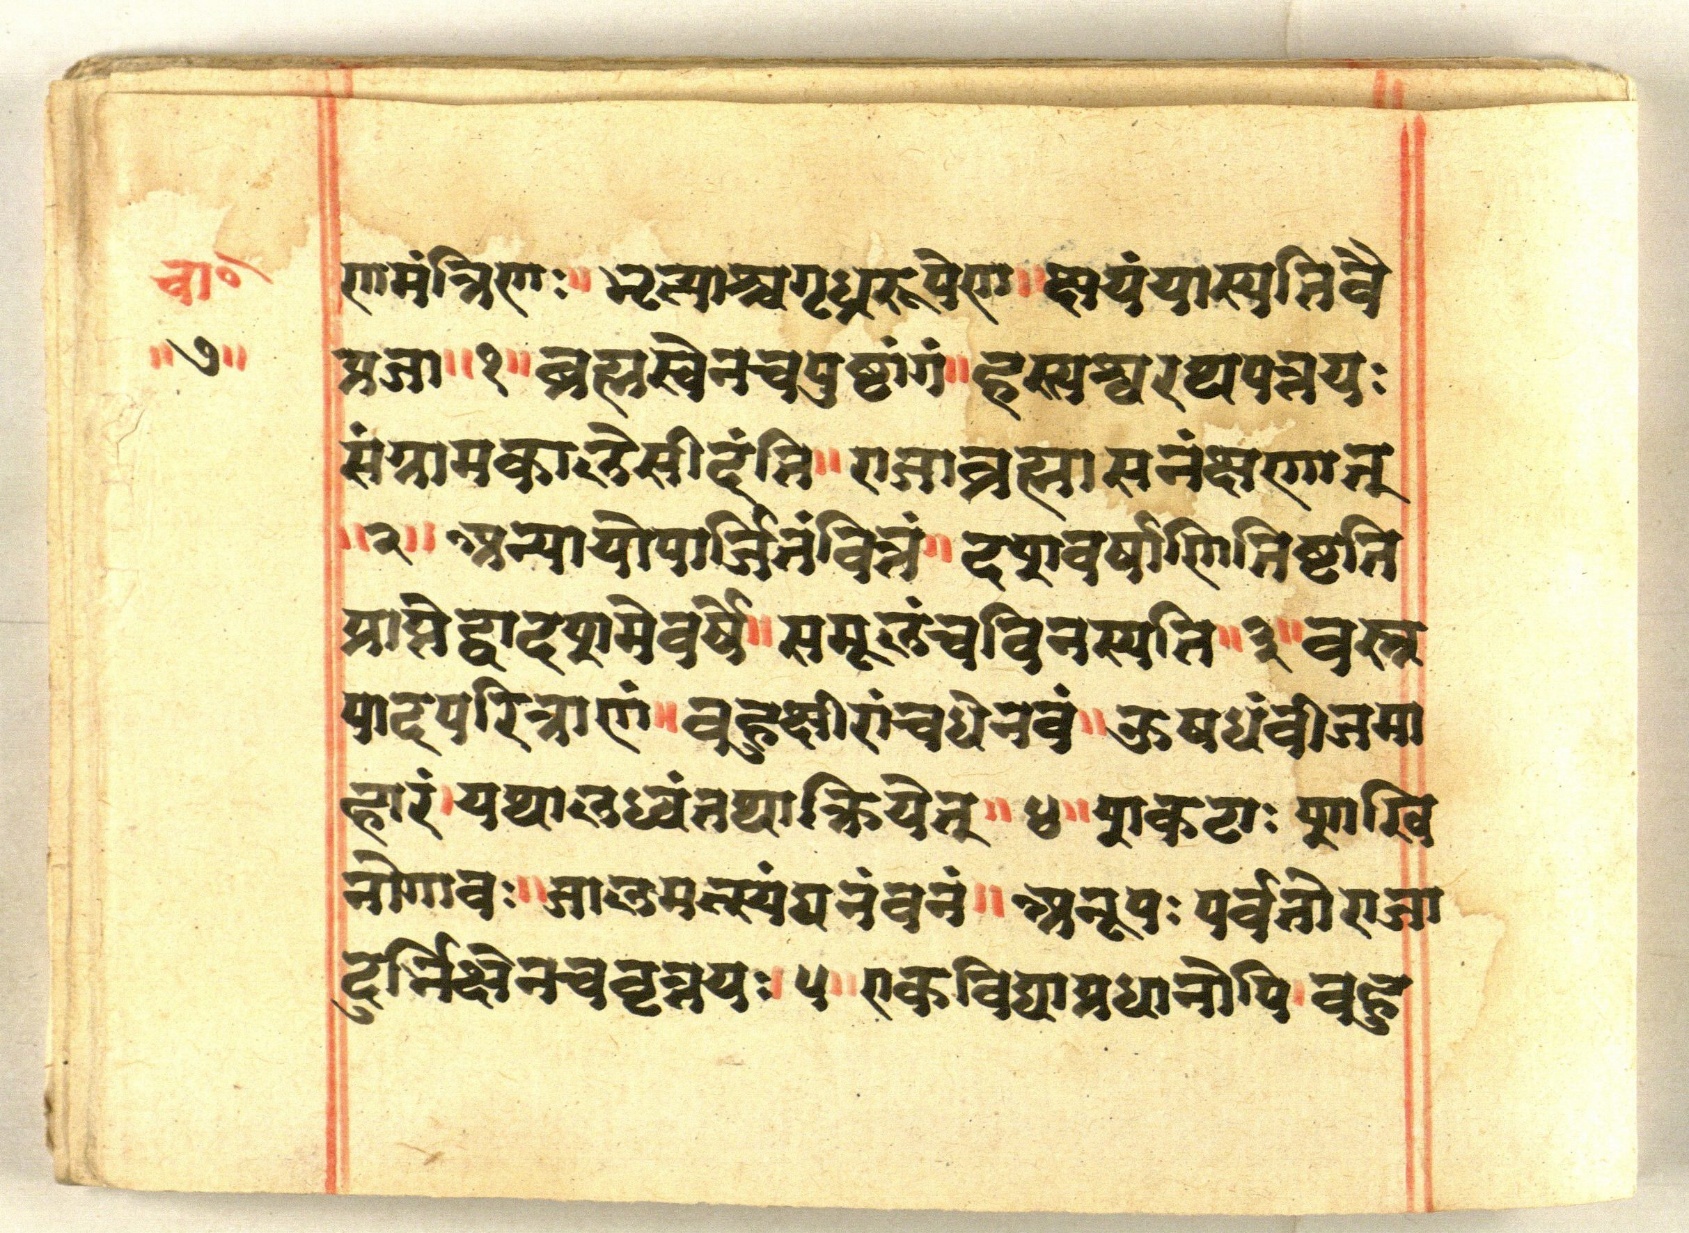 चा॰
॥७॥
णमंत्रिणः॥ भृत्याश्चगृध्ररूपेण॥ क्षयंयास्यतिवै
प्रजा॥१॥ ब्रह्मस्वेनचपुष्टांगं॥ हस्त्यश्वरथपत्तयः
संग्रामकालेसीदंति॥ राजाब्रह्मासनंक्षणात्
॥२॥ अन्यायोपार्जितंवित्तं॥ दशवर्षाणितिष्टति
प्राप्तेद्वादशमेवर्षे॥ समूलंचविनस्यति॥३॥ वस्त्र
पादपरित्राणं॥ वुहुक्षीरांचधेनवं॥ ऊषधंवीजमा
हारं॥ यथालध्वंतथाक्रियेत्॥४॥ शकटाः शाखि
नोगावः॥ जालमत्स्यंद्यनंवनं॥ अनूपः पर्वतोराजा
दुर्भिक्षेनचवृत्तयः॥५॥ एकविद्याप्रधानोपि॥ वुहु